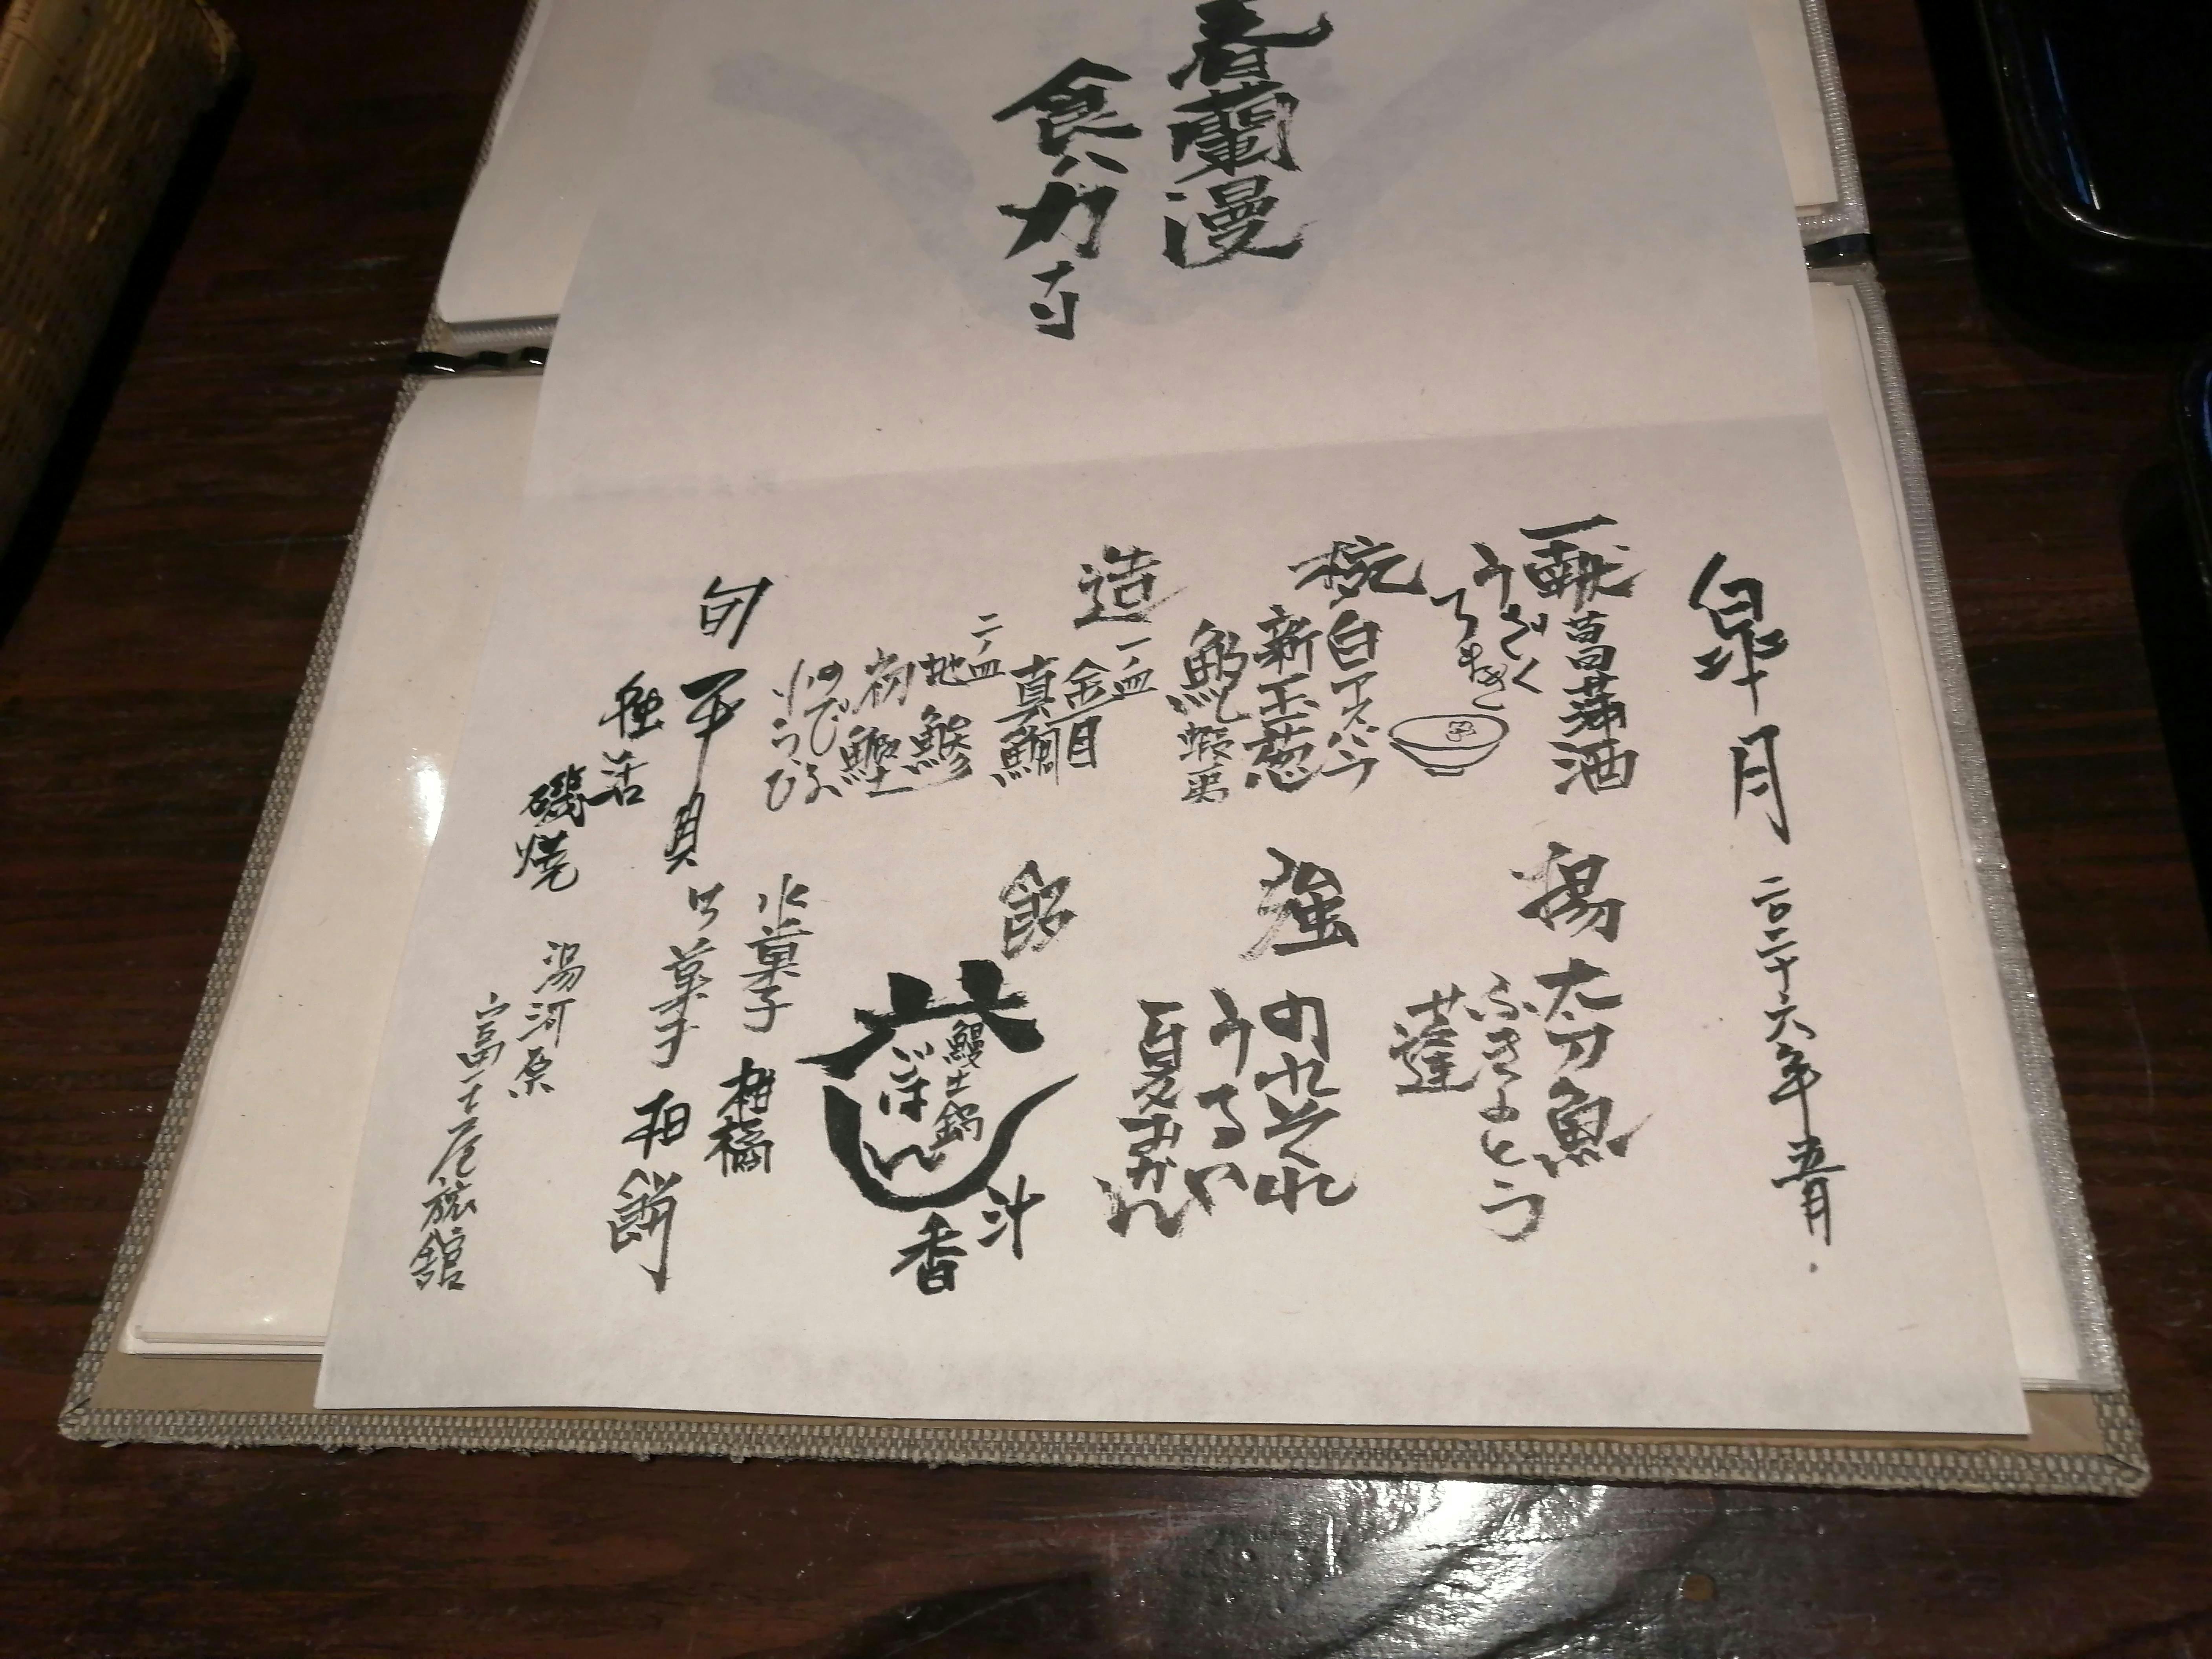 春蘭漫
食八力寸
皐月 二〇二十六年 五月.
一献 菖蒲酒
うざく
椀 白アスパラ
新玉葱
造 一ノ皿 金目
真鯛
二ノ皿 地鯵
初鰹
旬 平貝
磯焼
揚 太刀魚
ふきのとう
蓬
強 のれそれ
うるい
夏みかん
鰻土鍋
ごはん
汁
香
水菓子 柑橘
甘菓子 柏餅
湯河原
富士屋旅館